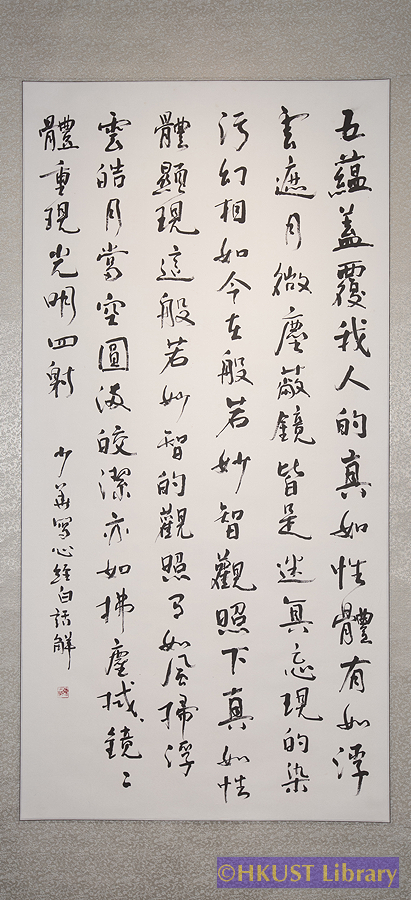 五蘊蓋覆我人的真如性體有如浮
雲遮月微塵蔽鏡皆是迷真忘現的染
污幻相如今在般若妙智觀照下真如性
體顯現這般若妙智的觀照了如風掃浮
雲皓月當空圓滿皎潔亦如拂塵拭鏡鏡
體重現光明四射
少華寫心經白話解
©HKUST Library